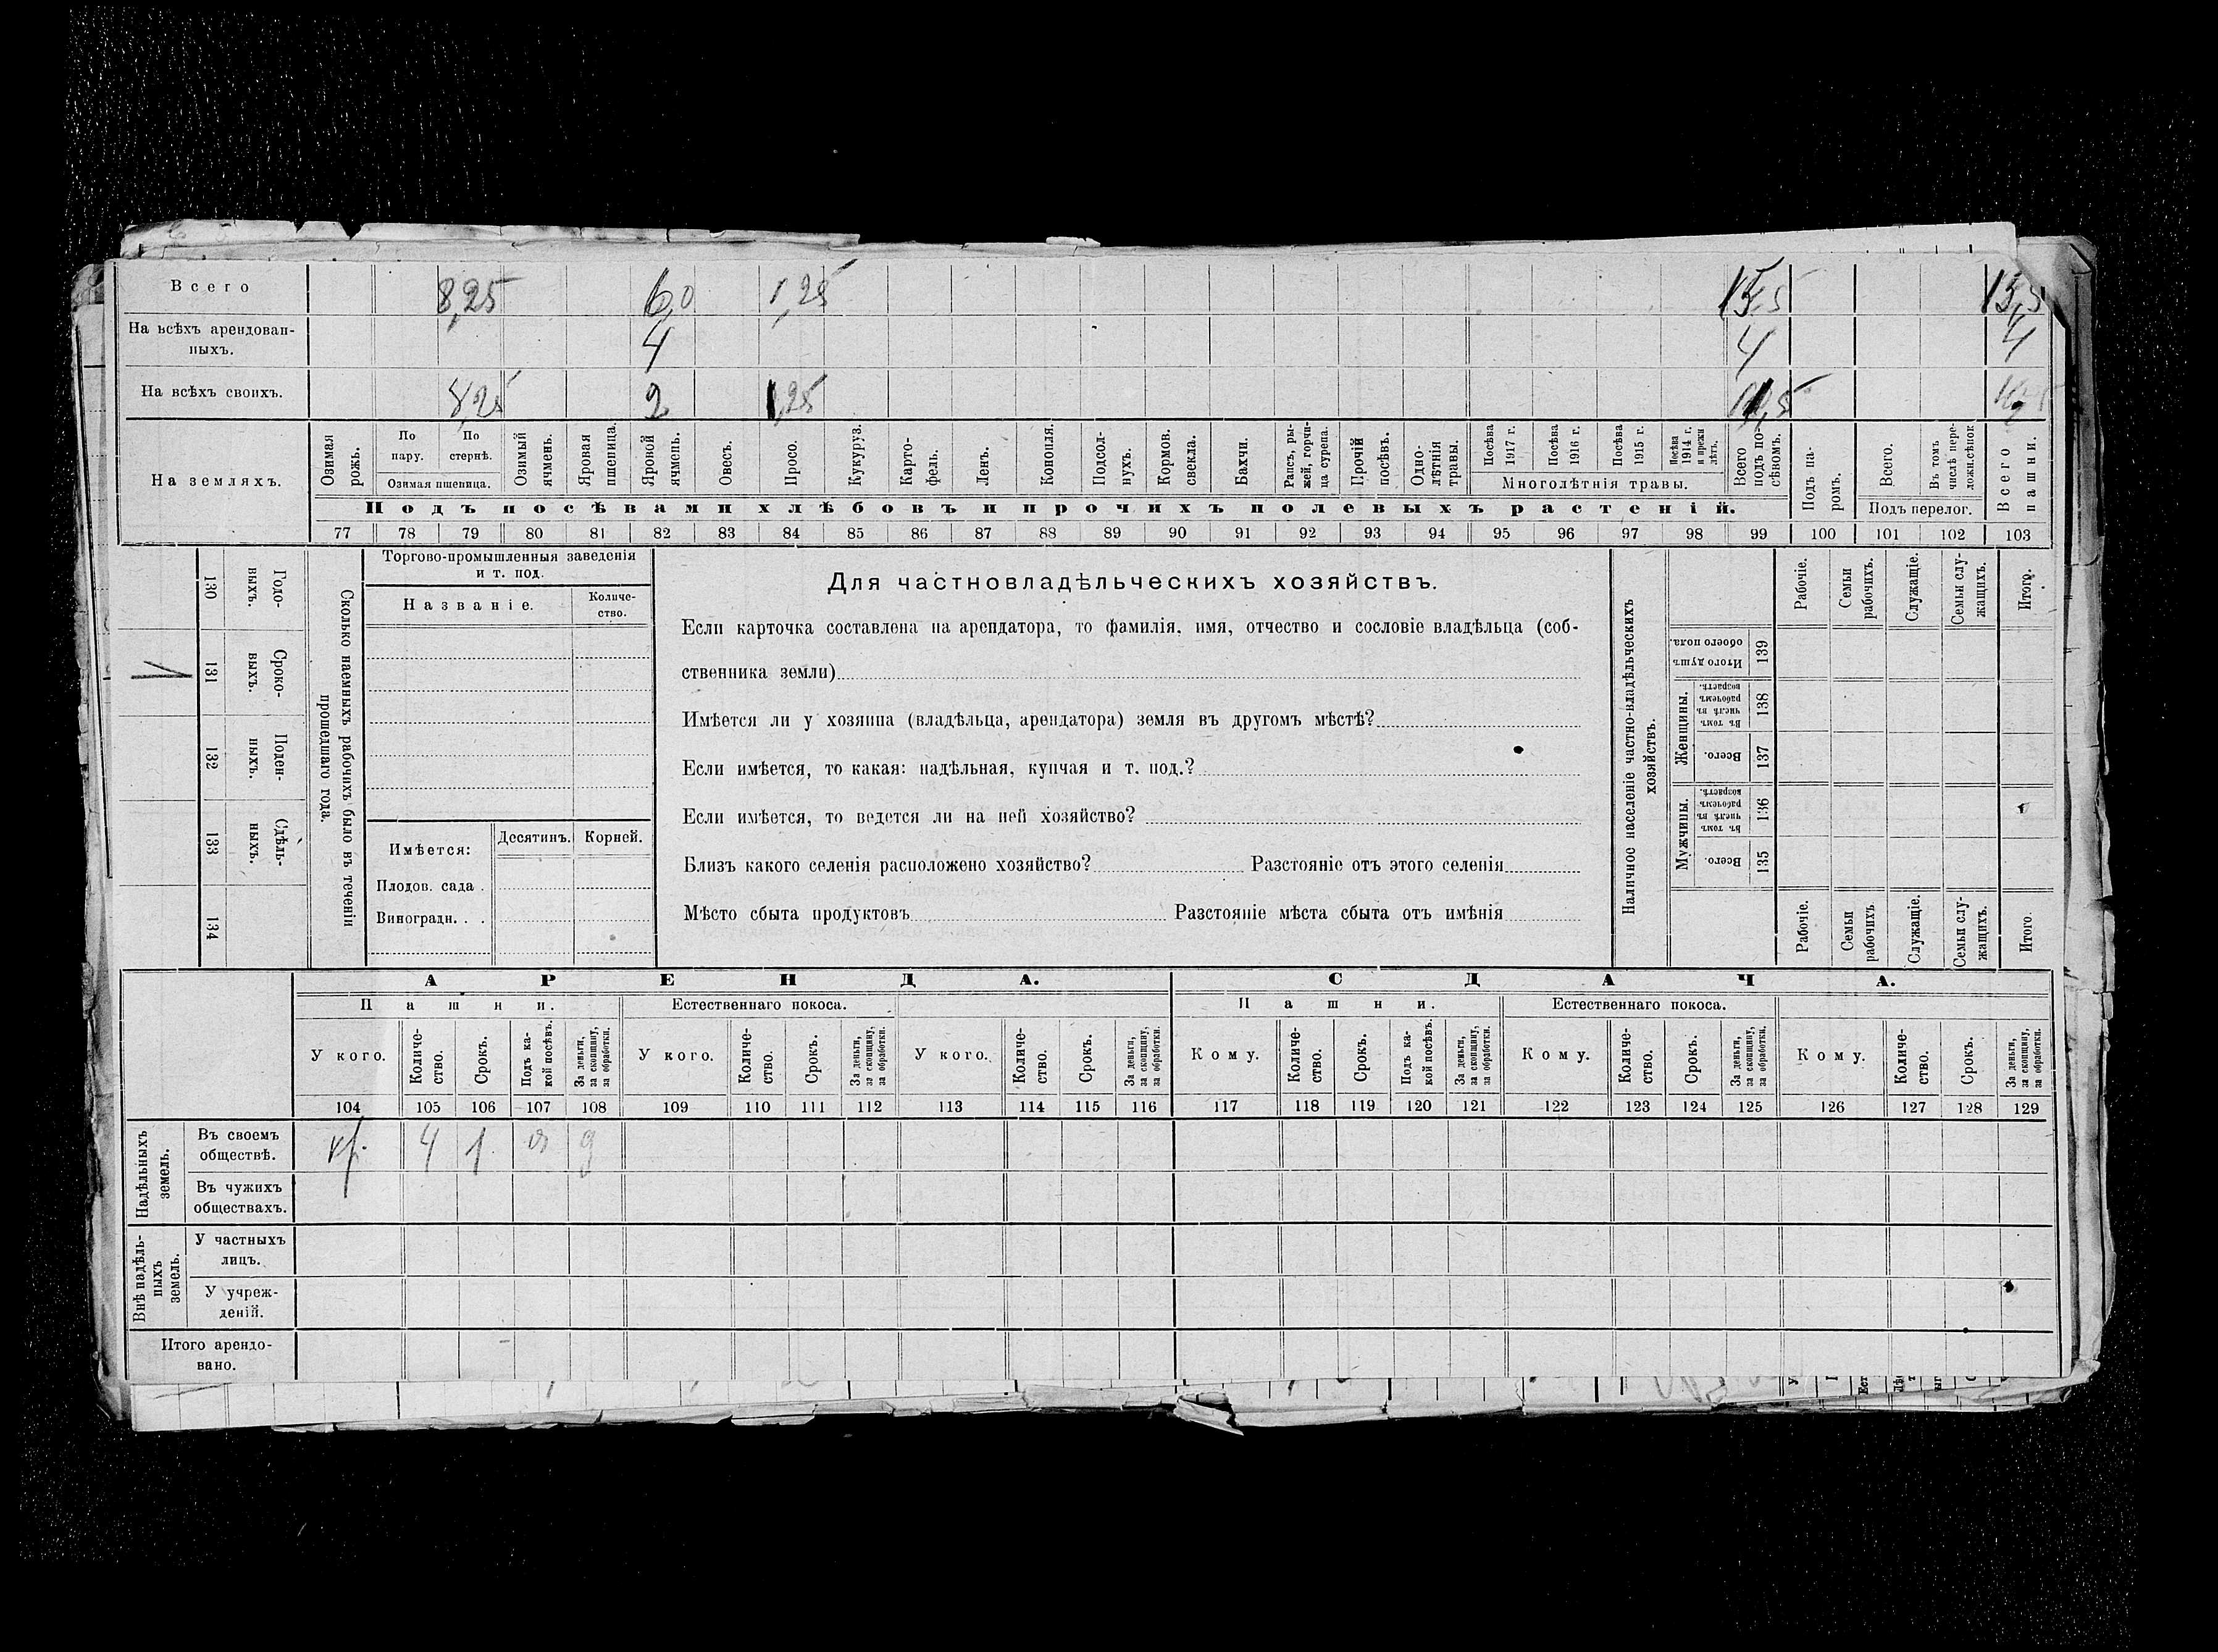 Всего 8,25 6,0 1,25 15,5 15,5
На всѣхъ арендован-
ныхъ. 4 4 4
На всѣхъ своихъ. 8,25 2 1,25 11,5
На земляхъ.
Озимая рожь.
По пару.
По стернѣ.
Озимая пшеница.
Озимый ячмень.
Яровая пшеница.
Яровой ячмень.
Овесъ.
Просо.
Кукуруз.
Карто-
фель.
Ленъ.
Конопля.
Подсол-
нухъ.
Кормов. свекла.
Бахчи.
Рапсъ, ры-
жей, горчи-
ца сурепа.
Прочій посѣвъ.
Одно-
лѣтнія травы.
Посѣва 1917 г.
Посѣва 1916 г.
Посѣва 1915 г.
Посѣва 1914 г. и прежн лѣтъ.
Многолѣтнія травы.
Всего подъ по-
сѣвомъ.
Подъ па-
ромъ.
Всего.
Въ томъ числѣ пере-
ложн.сѣнок
Подъ перелог.
Всего пашни.
Подъ посѣвами хлѣбовъ и прочихъ полевыхъ растеній.
77 78 79 80 81 82 83 84 85 86 87 88 89 90 91 92 93 94 95 96 97 98 99 100 101 102 103
130 Годо-
выхъ.
131 Сроко-
выхъ.
132 Поден-
ныхъ.
133 Сдѣль-
ныхъ.
134
Сколько наемныхъ рабочихъ было въ теченіи
прошедшаго года.
Торгово-промышленныя заведенія
и т. под.
Названіе.
Количе-
ство.
Имѣется: Десятинъ. Корней.
Плодов. сада .
Виноградн. . .
Для частновладѣльческихъ хозяйствъ.
Если карточка составлена на арендатора, то фамилія, имя, отчество и сословіе владѣльца (соб-
ственника земли)
Имѣется ли у хозяина (владѣльца, арендатора) земля въ другомъ мѣстѣ?
Если имѣется, то какая: надѣльная, купчая и т. под.?
Если имѣется, то ведется ли на ней хозяйство?
Близъ какого селенія расположено хозяйство? Разстояніе отъ этого селенія
Мѣсто сбыта продуктовъ Разстояніе мѣста сбыта отъ имѣнія
Наличное населеніе частно-владѣльческихъ
хозяйствъ.
Рабочіе.
Семьи рабочихъ.
Служащіе.
Семьи слу-
жащихъ.
Итого.
Итого душъ обоего пола. 139
Женщины.
Въ томъ числѣ въ рабочемъ возрастѣ. 138
Всего. 137
Мужчины.
Въ томъ числѣ въ рабочемъ возрастѣ. 136
Всего. 135
Рабочіе.
Семьи рабочихъ
Служащіе.
Семьи слу-
жащихъ.
Итого.
АРЕНДА. СДАЧА.
Пашни. Естественнаго покоса. Пашни. Естественнаго покоса.
У кого.
Количе-
ство.
Срокъ.
Подъ ка-
кой посѣвъ.
За деньги, за скопщину, за обработки.
У кого.
Количе-
ство.
Срокъ.
За деньги, за скопщину, за обработки.
У кого.
Количе-
ство.
Срокъ.
За деньги, за скопщину, за обработки.
Кому.
Количе-
ство.
Срокъ.
Подъ ка-
кой посѣвъ.
За деньги, за скопщину, за обработки.
Кому.
Количе-
ство.
Срокъ.
За деньги, за скопщину, за обработки.
Кому.
Количе-
ство.
Срокъ.
За деньги, за скопщину, за обработки.
104 105 106 107 108 109 110 111 112 113 114 115 116 117 118 119 120 121 122 123 124 125 126 127 128 129
Надѣльныхъ земель.
Въ своемъ
обществѣ. 4 1
Въ чужихъ
обществахъ.
Внѣ надѣль-
ныхъ земель.
У частныхъ
лицъ.
У учреж-
деній.
Итого арендо-
вано.